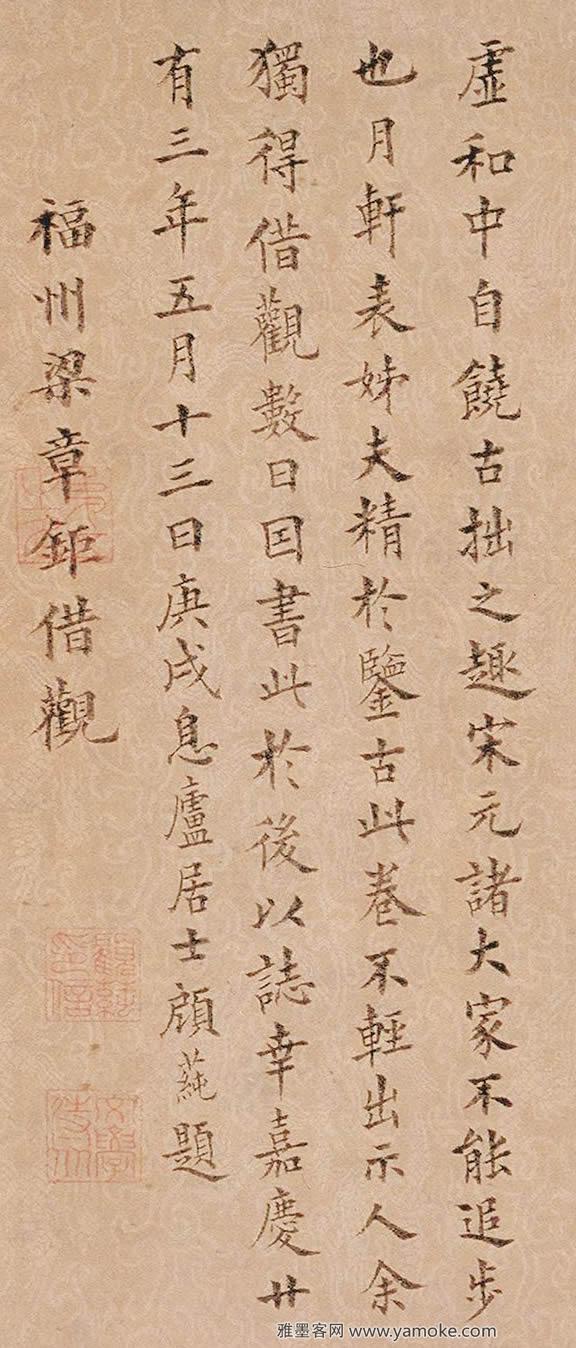 虛和中自饒古拙之趣宋元諸大家不能追步
也月軒表姊夫精於鑒古此卷不輕出示人余
獨得借觀數日因書此於後以誌幸嘉慶廿
有三年五月十三日庚戌息廬居士顧蒓題
福州梁章鉅借觀
雅墨客网 www.yamoke.com